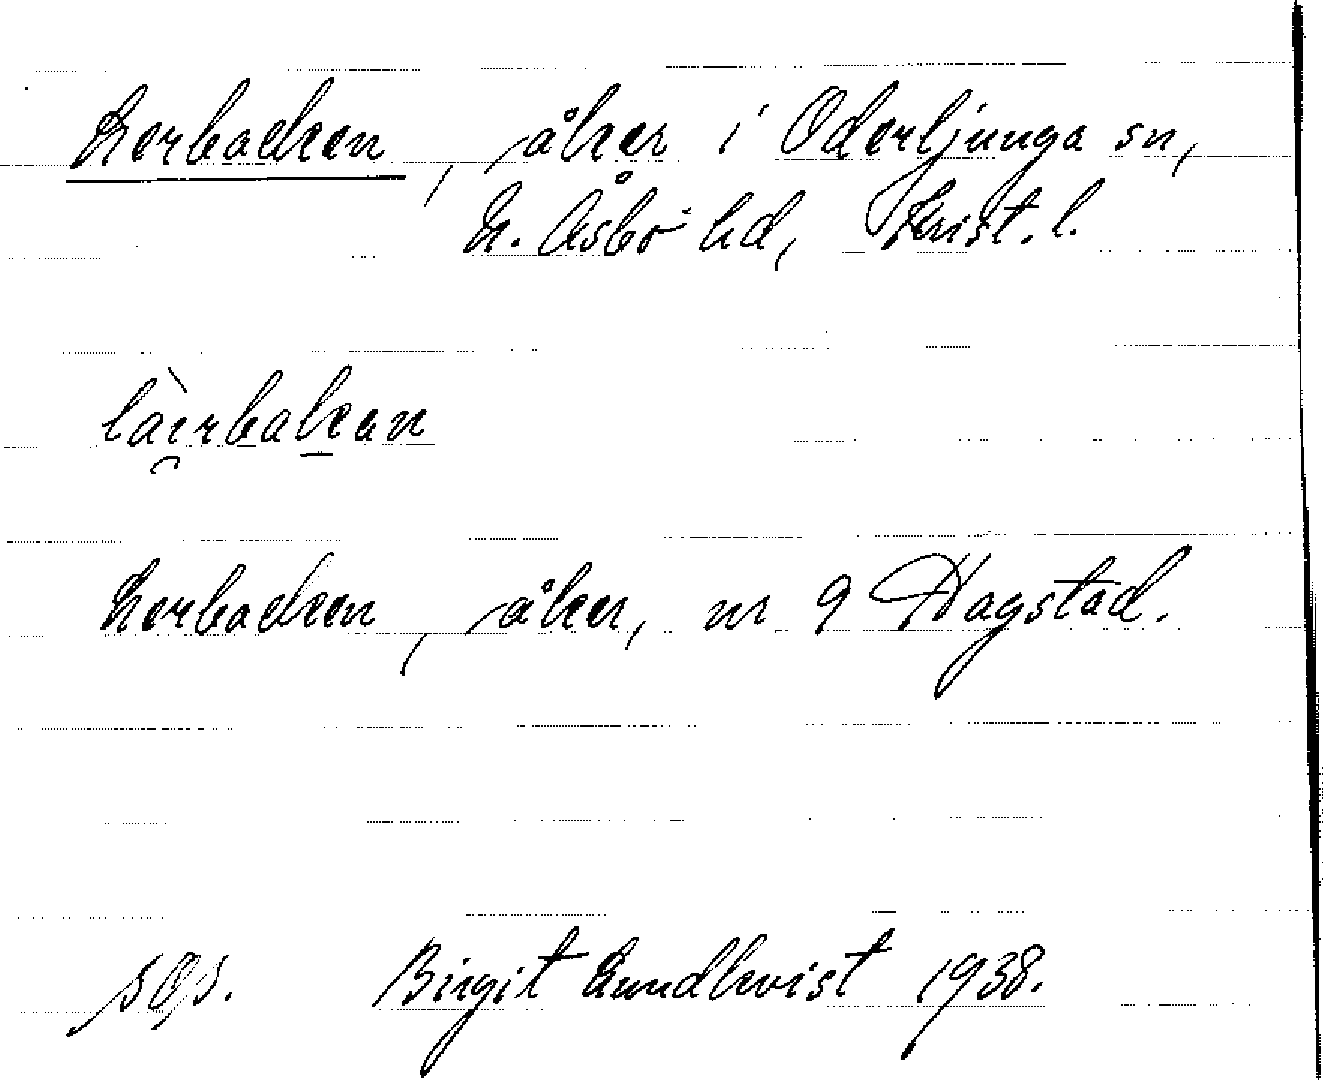 Lerbacken, åker i Oderljunga sn,
N. Åsbo hd, Krist. l.
làerbakan
Lerbacken, åker, nr 9 Hagstad.
Birgit Lundkvist 1938.